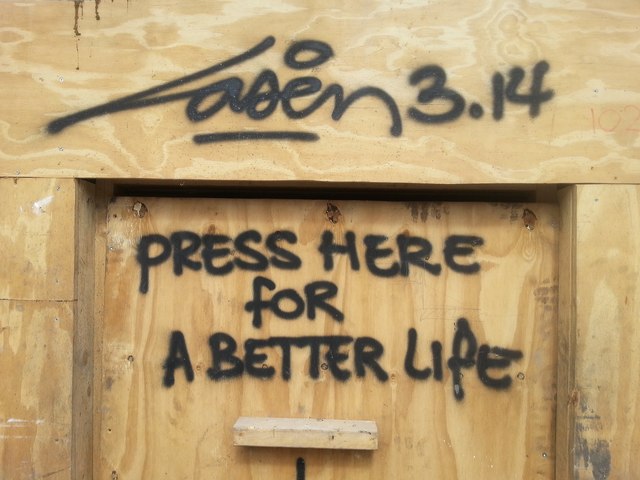 Laser 3.14
PRESS HERE
FOR
A BETTER LIFE